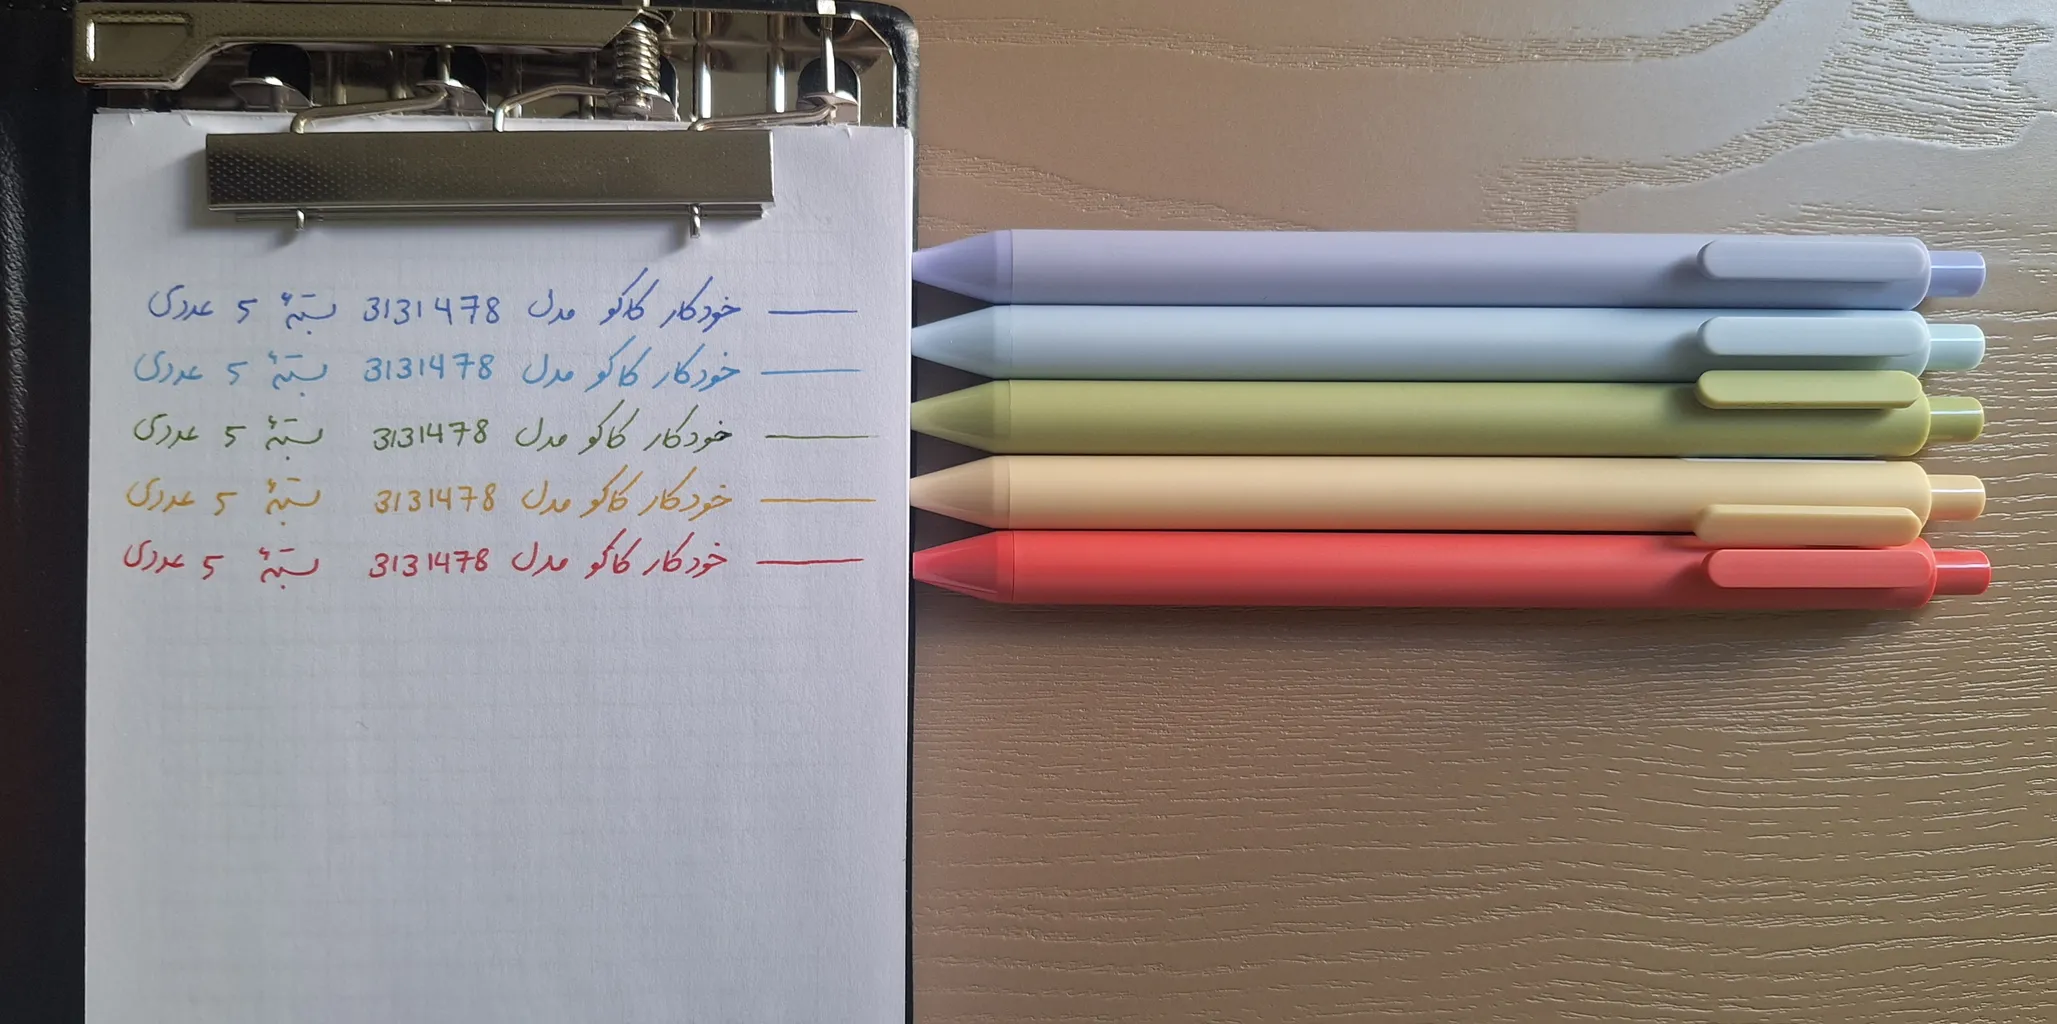 خودکار کاکو مدل 3131478 بستهٔ 5 عددی
خودکار کاکو مدل 3131478 بستهٔ 5 عددی
خودکار کاکو مدل 3131478 بستهٔ 5 عددی
خودکار کاکو مدل 3131478 بستهٔ 5 عددی
خودکار کاکو مدل 3131478 بستهٔ 5 عددی